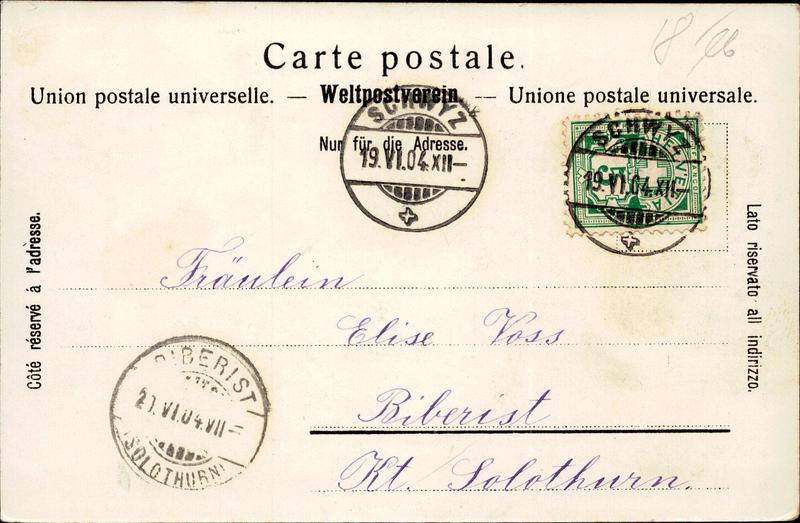 18/06
Carte postale.
Union postale universelle. — Weltpostverein. — Unione postale universale.
Nur für die Adresse.
SCHWYZ
19.VI.04.XII–
SCHWYZ
19.VI.04.XII–
HELVETIA
5
Côté réservé à l'adresse.
Lato riservato all indirizzo.
Fräulein
Elise Voss
Biberist
Kt. Solothurn.
BIBERIST
20.VI.04.VII–
(SOLOTHURN)